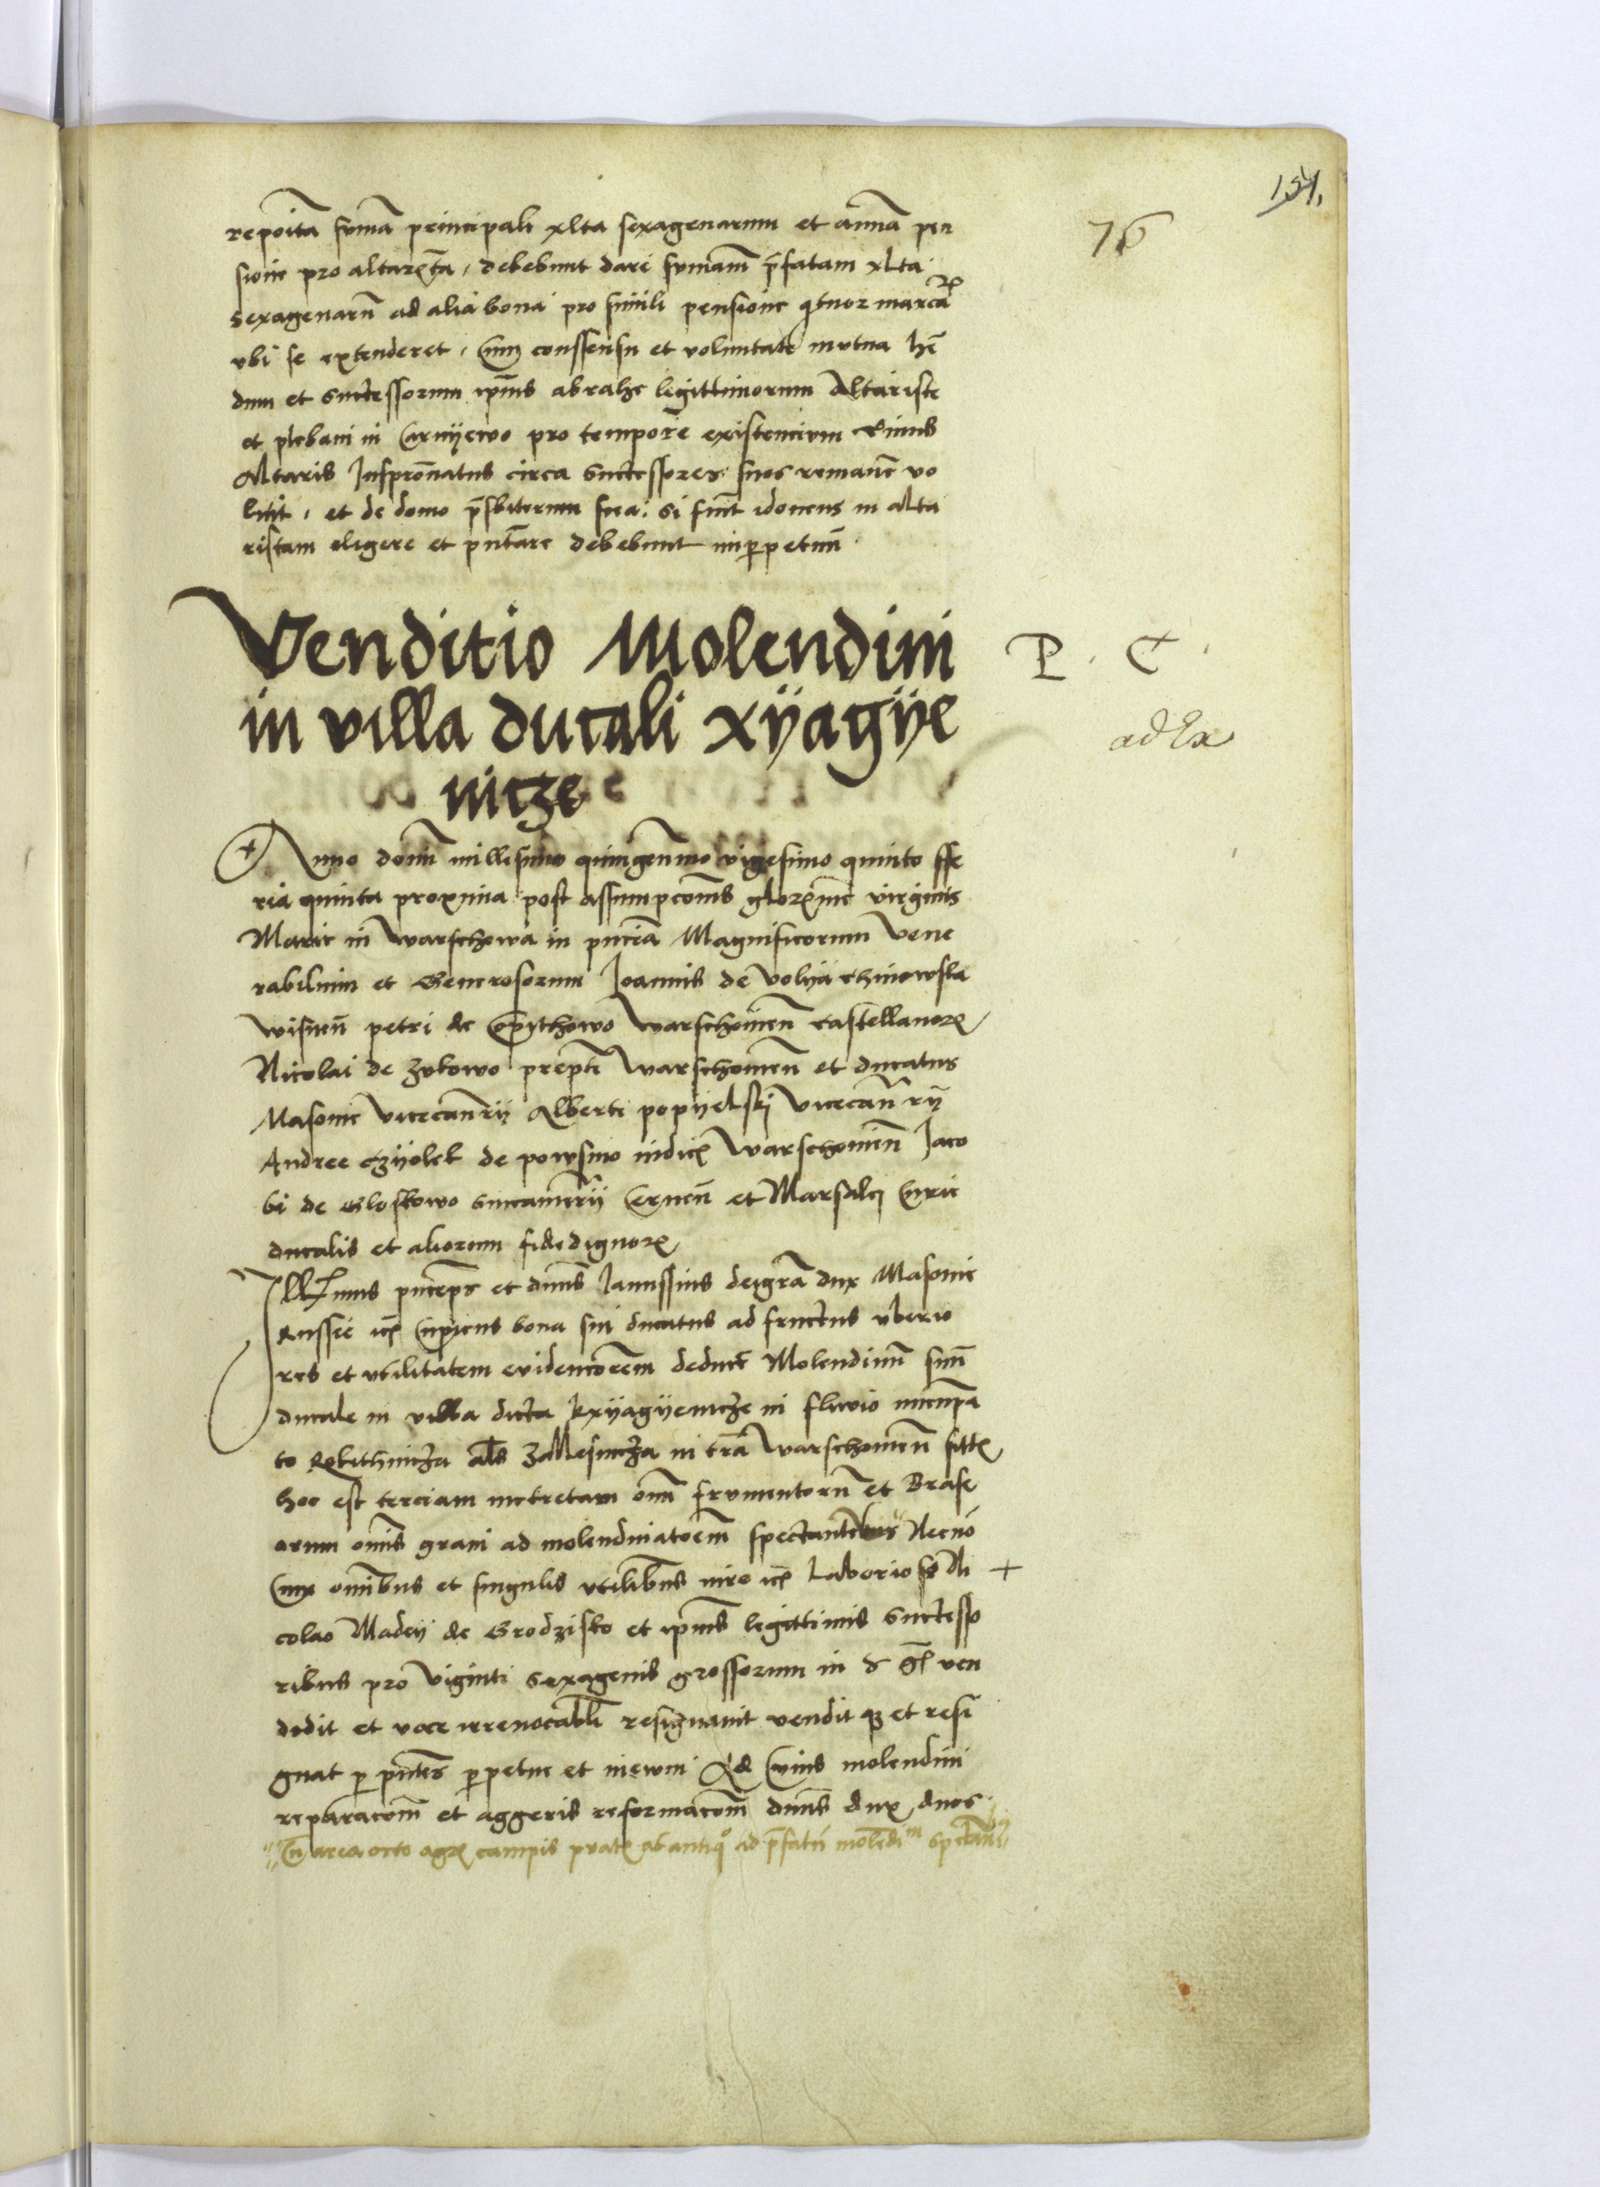 151.
76
repoita suma principali xlta sexagenarum et annua pen
sione pro altarista, debebunt dare sumam prefatam xlta
sexagenaru ad alia bona pro simili pensione qtuor marcar
vbi se extenderet, Cum conssensu et voluntate mutua here
dum et successorum ipius abrahe legittimorum Altariste
et plebani in pro tempore existencium Cuius
Altaris Juspronatus circa successores suos remane vo
luit, et de domo presbiterum sua, si fuit idoneus in alta
ristam eligere et pntare debebunt inperpetuu
Venditio Molendini
in villa ducali Xyagye
nicze
P. C.
ad Ex
Anno domi millesimo quingenmo vigesimo quinto ffe
ria quinta proxima post assumpcomis glorisime virginis
Marie in Warschowa in pncia Magnificorum Vene
rabilium et Generosorum Joannis de Volya Chinowska
Wisnen petri de Warschouien Castellanor
Nicolai de Zukowo prepti Warschouien et ducatus
Masouie Vicecanrij Alberti popyelski Vicecanrij
Andree Czyolek de powsino iudicis Warschouien Jaco
bi de Gloskowo succamerrij Cernen et Marsalci Curie
ducalis et aliorum fidedignor
Illmus princeps et dnus Janussius deigra dux Masouie
Russie ic Cupiens bona sui ducatus ad fructus vberio
res et vtilitatem euidencorem deduce Molendinu suu
ducale in villa dicta Kxyagyenicze in fluuio nuncupa
to Rokithnicza als Zallesnicza in tra Warschouien sittu
hoc est terciam metretam omni frumentoru et Brase
orum omis grani ad molendinatoem spectantibus Necno
Cum omibus et singulis vtilibus iure ic Laborioso Ni +
colao Madey de Grodzisko et ipius legittimis successo
ribus pro viginti sexagenis grossorum in ven
didit et voce irreuocabli resignauit vendit q et resi
gnat p pntes ppetue et in ewm Ad Cuius molendini
reparacom et aggeris reformacom dnus dux duos
Cu area orto agr campis prat abantiquo ad prefatu molendim spectan